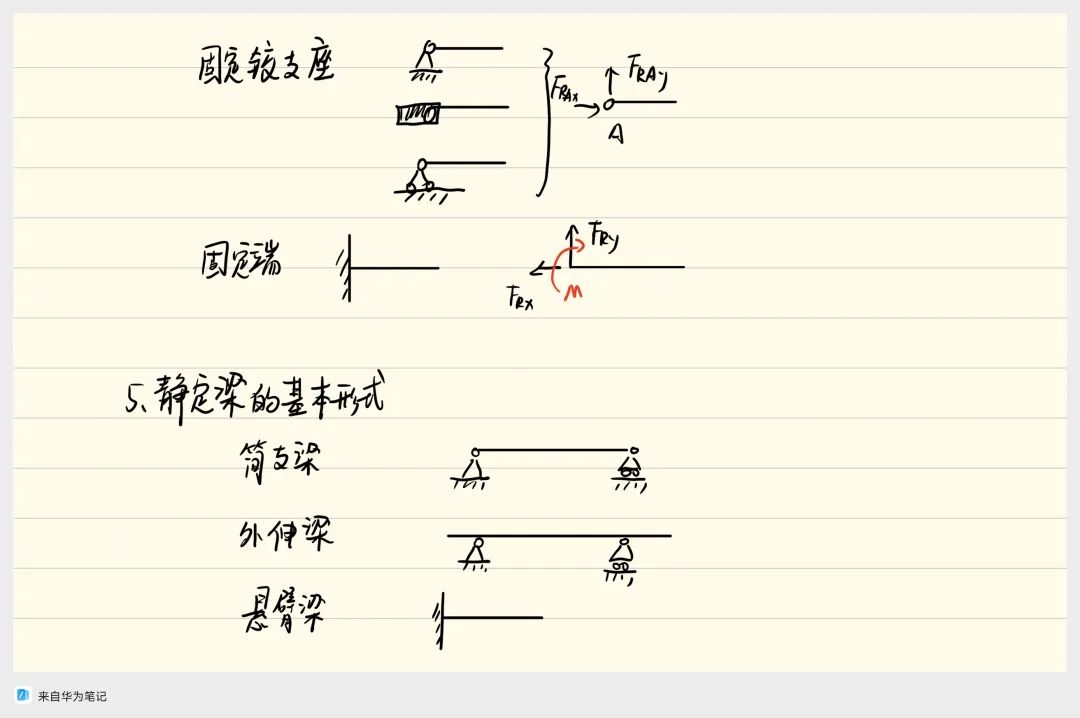 固定铰支座
F_RAx F_RAy
A
固定端
F_Rx F_Ry
M
5、静定梁的基本形式
简支梁
外伸梁
悬臂梁
来自华为笔记